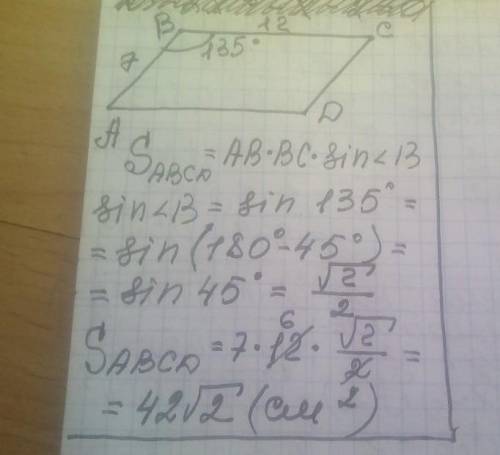 B 12 C
7 135°
A D
S_ABCD = AB · BC · sin<B
sin<B = sin 135° =
= sin (180° - 45°) =
= sin 45° = √2/2
S_ABCD = 7 · 12 6 · √2/2 =
= 42√2 (см²)